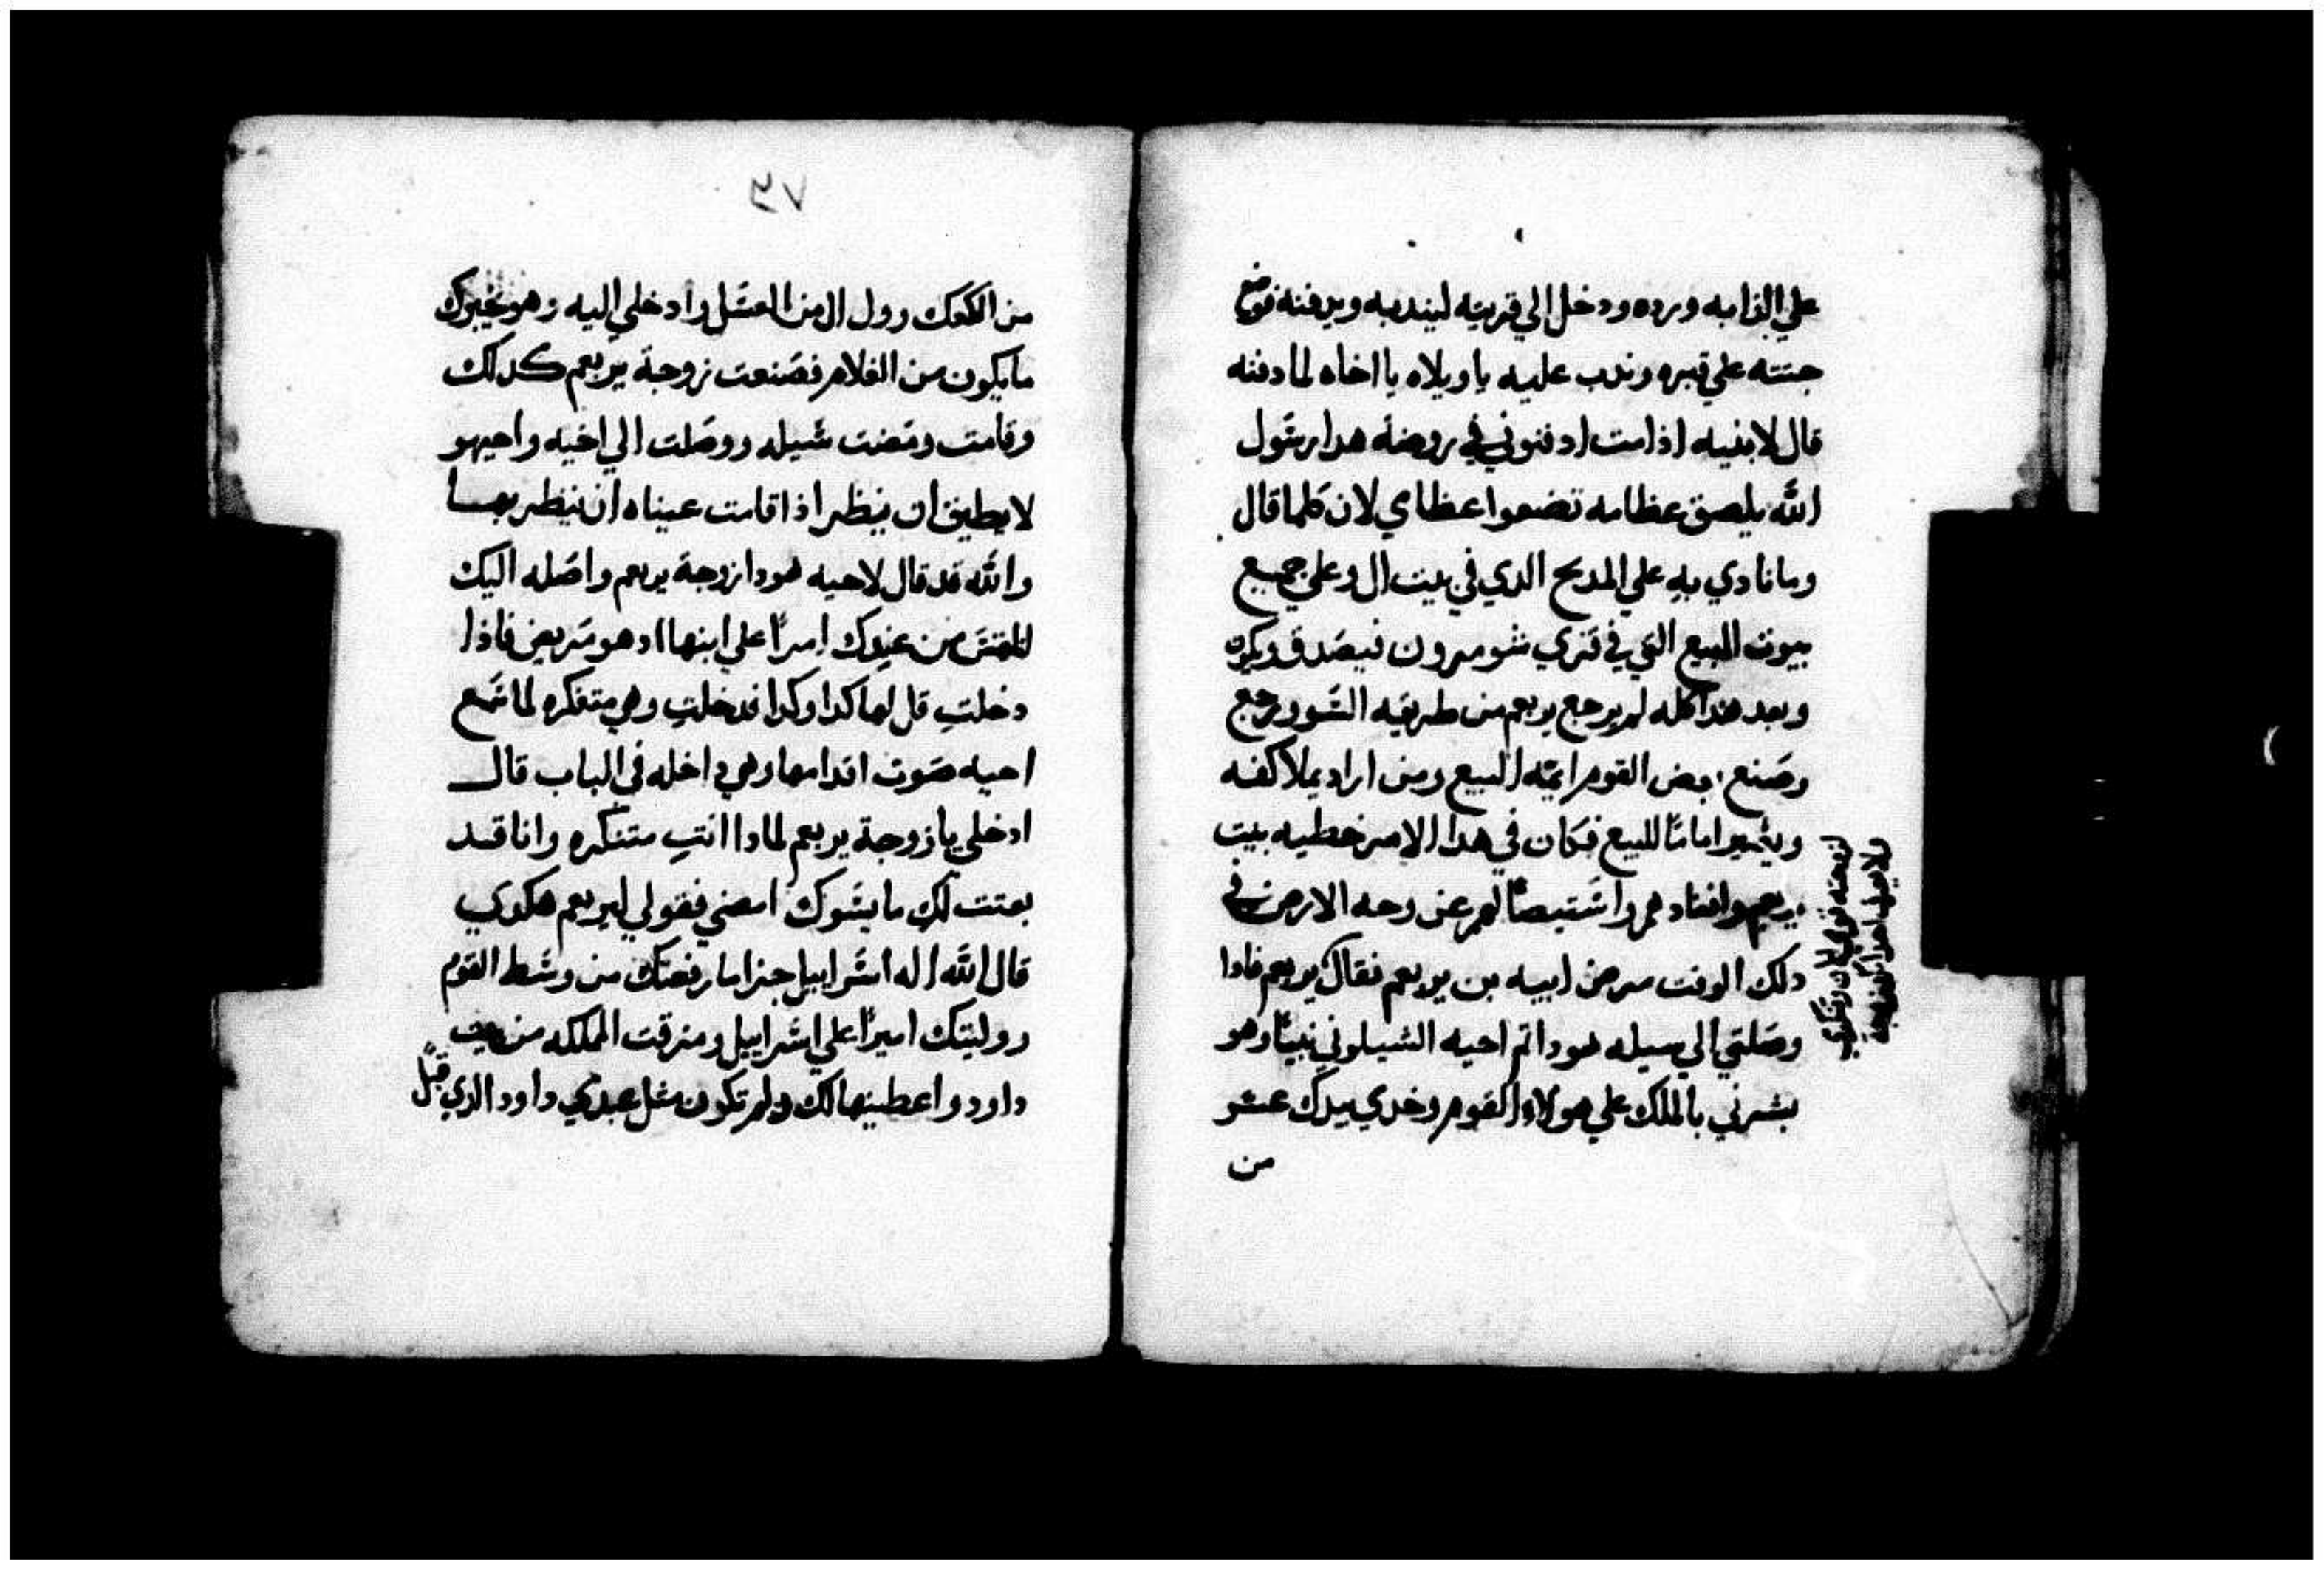 علي الدابه ورده ودخل الي قريته ليندبه ويدفنه فوضع
جثته علي قبره وندب عليه ياويلاه يا اخاه لما دفنه
قال لابنيه اذا مت ادفنوني في روضة هدا رسول
الله بلصق عظامه تضعوا عظامي لان كلما قال
وما نادي به علي المدبح الدي في بيت ال وعلي جميع
بيوت البيع التي في قري شومرون فيصدق ويكره
وبعد هدا كله لم يرجع يربعم من طريقه السو ورجع
وصنع بعض القوم ايمة البيع ومن اراد يملا كفه
ويصير اماما للبيع فكان في هدا الامر خطيه بيت
يربعم وافنادهم واستيصالهم عن وجه الارض في
دلك الوقت مرض ابيه بن يربعم فقال يربعم فادا
وصلتي الي سيله هودا تم احيه الشيلوني نبيا وهو
بشرني بالملك علي هولاء القوم وخدي بيدك عشر
من
٦٧
من الكعك رول ال من العسل وادخلي اليه وهو يخبرك
مايكون من الغلام فصنعت زوجة يربعم كدلك
وقامت ومضت شيله ووصلت الي اخيه واحيهو
لايطيق ان ينظر اذا قامت عيناه ان ينظر بهما
والله قد قال لاحيه هودا زوجة يربعم واصله اليك
لتلتمس من عندك امرا علي ابنها اد هو مريض فاذا
دخلت قل لها كدا وكدا فدخلت وهي متفكره لما سمع
احيه صوت اقدامها وهي داخله في الباب قال
ادخلي يا زوجة يربعم لمادا انتِ متنكره وانا قد
بعتت لكِ ما يسوك امضي فقولي ليربعم هكدي
قال الله اله اسراييل جزا ما رفعتك من وسط القوم
ووليتك اميرا علي اسراييل ومزقت المملكه من بيت
داود واعطيتها لك ولم تكون مثل عبدي داود الدي قبل